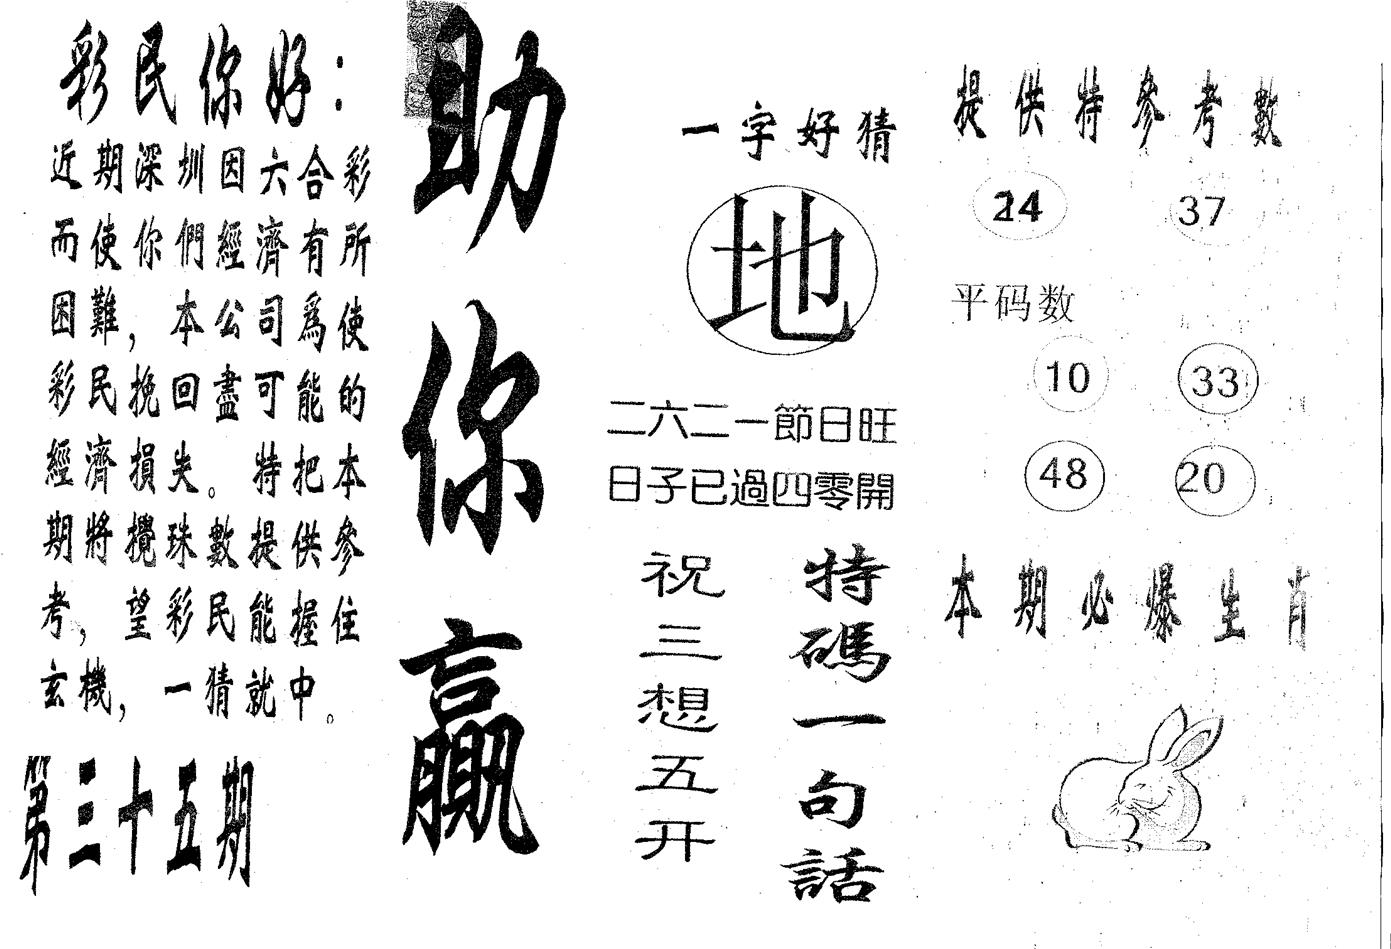 彩民你好：
近期深圳因六合彩
而使你們經濟有所
困難，本公司為使
彩民挽回盡可能的
經濟損失。特把本
期將攪珠數提供參
考，望彩民能握住
玄機，一猜就中。
第三十五期
助你贏
一字好猜
地
二六二一節日旺
日子已過四零開
特碼一句話
祝三想五开
提供特參考數
24 37
平码数
10 33
48 20
本期必爆生肖